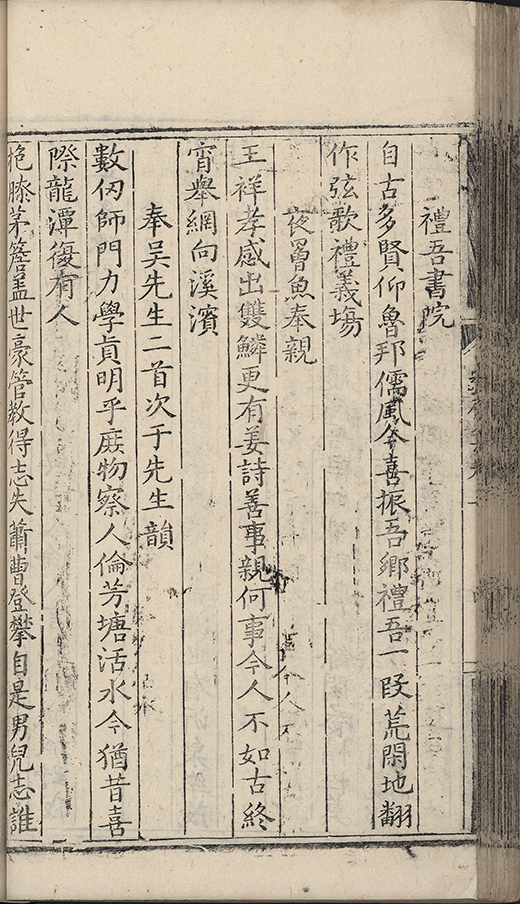 禮吾書院
自古多賢仰魯邦儒風今喜振吾鄉禮吾一段荒閑地翻
作弦歌禮義塲
夜罾魚奉親
王祥孝感出雙鱗更有姜詩善事親何事今人不如古終
宵舉網向溪濱
奉吳先生二首次于先生韻
數仞師門力學貞明乎庶物察人倫芳塘活水今猶昔喜
際龍潭復有人
抱膝茅簷蓋世豪管教得志失蕭曹登攀自是男兒志誰